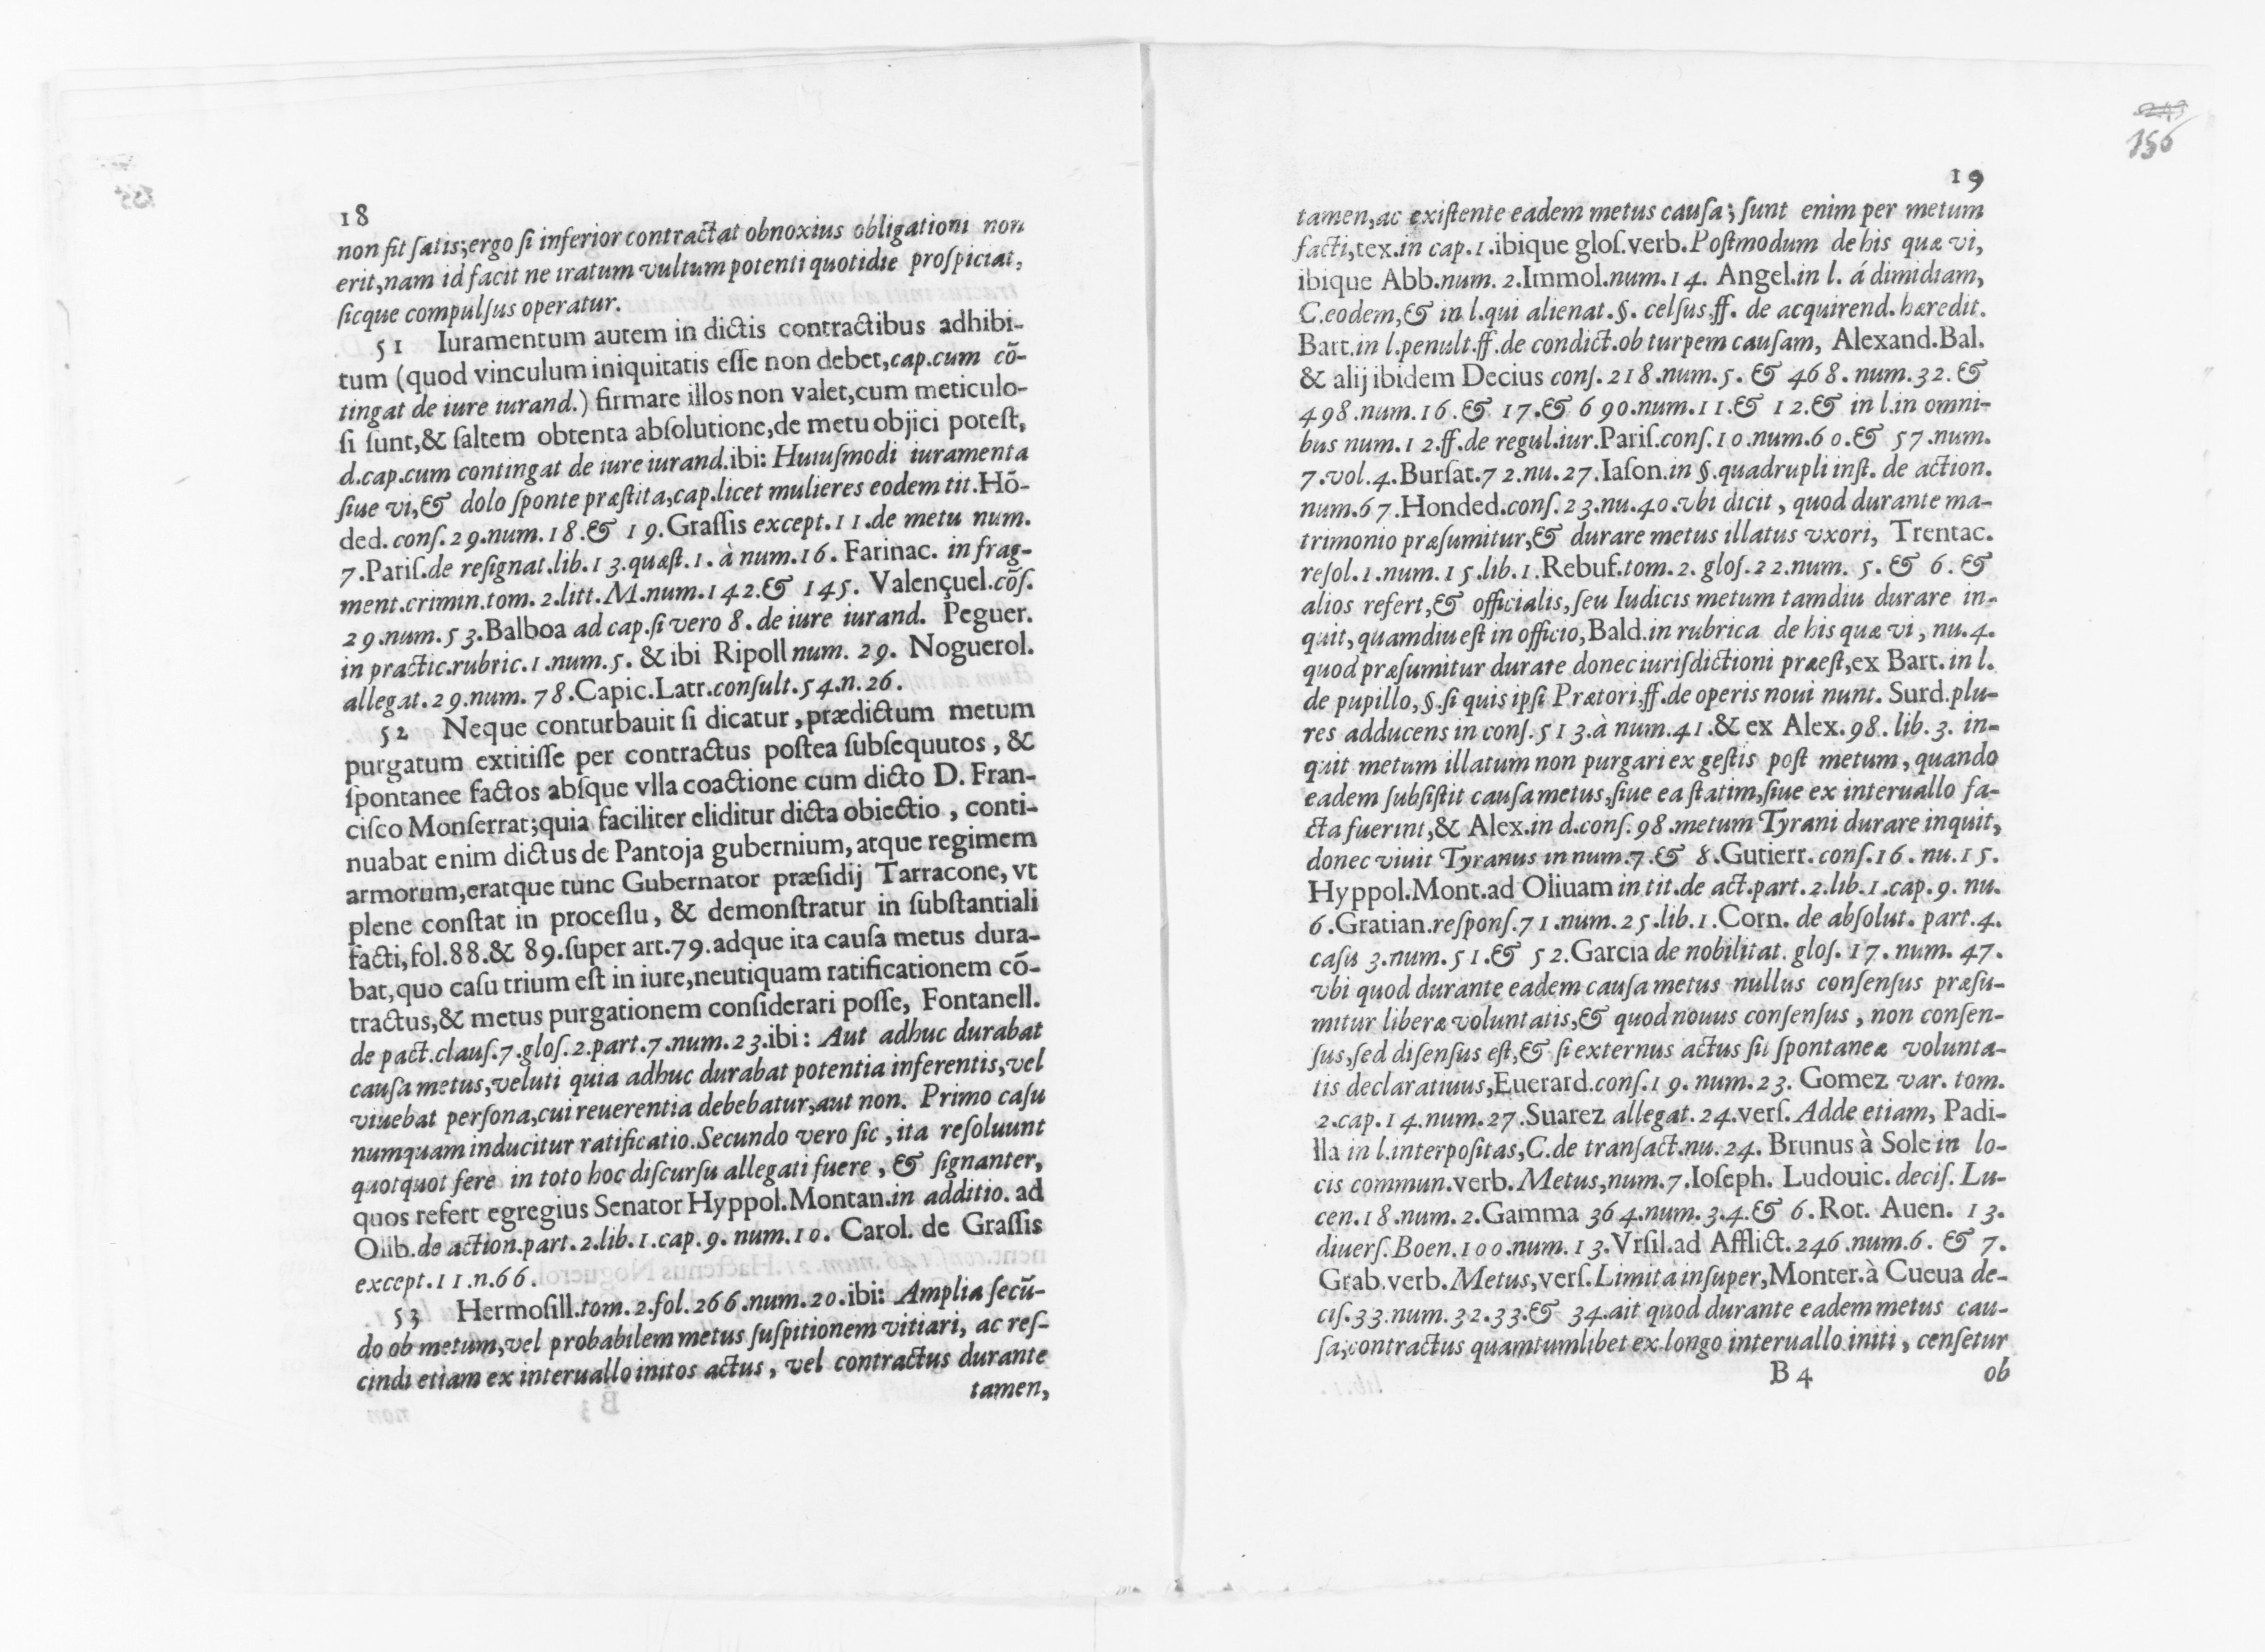 18
non fit ſatis;ergo ſi inferior contractat obnoxius obligationi non
erit,nam id facit ne iratum vultum potenti quotidie proſpiciat,
ſicque compulſus operatur.
51 Iuramentum autem in dictis contractibus adhibi-
tum (quod vinculum iniquitatis eſſe non debet,cap.cum cõ-
tingat de iure iurand.) firmare illos non valet,cum meticulo-
ſi ſunt,& ſaltem obtenta abſolutione,de metu objici poteſt,
d.cap.cum contingat de iure iurand.ibi: Huiuſmodi iuramenta
ſiue vi,& dolo ſponte præſtita,cap.licet mulieres eodem tit.Hõ-
ded. conſ.29.num.18.& 19.Graſſis except.11.de metu num.
7.Pariſ.de reſignat.lib.13.quæſt.1. à num.16. Farinac. in frag-
ment.crimin.tom. 2.litt. M.num.142.& 145. Valençuel.cõſ.
29.num.53.Balboa ad cap.ſi vero 8. de iure iurand. Peguer.
in practic.rubric.1.num.5. & ibi Ripoll num. 29. Noguerol.
allegat.29.num. 78.Capic.Latr.conſult.54.n.26.
52 Neque conturbauit ſi dicatur, prædictum metum
purgatum extitiſſe per contractus poſtea ſubſequutos, &
ſpontanee factos abſque vlla coactione cum dicto D. Fran-
ciſco Monſerrat;quia faciliter eliditur dicta obiectio, conti-
nuabat enim dictus de Pantoja gubernium, atque regimem
armorum,eratque tunc Gubernator præſidij Tarracone, vt
plene conſtat in proceſſu, & demonſtratur in ſubſtantiali
facti, fol.88.& 89.ſuper art.79.adque ita cauſa metus dura-
bat,quo caſu trium eſt in iure,neutiquam ratificationem cõ-
tractus,& metus purgationem conſiderari poſſe, Fontanell.
de pact.clauſ.7.gloſ.2.part.7.num.23.ibi: Aut adhuc durabat
cauſa metus,veluti quia adhuc durabat potentia inferentis,vel
viuebat perſona,cui reuerentia debebatur,aut non. Primo caſu
numquam inducitur ratificatio.Secundo vero ſic, ita reſoluunt
quotquot fere in toto hoc diſcurſu allegati fuere, & ſignanter,
quos refert egregius Senator Hyppol.Montan.in additio. ad
Olib.de action.part.2.lib.1.cap.9. num.10. Carol. de Graſſis
except.11.n.66.
53 Hermoſill.tom. 2.fol. 266.num.20.ibi: Amplia ſecũ-
do ob metum,vel probabilem metus ſuſpitionem vitiari, ac reſ-
cindi etiam ex interuallo initos actus, vel contractus durante
tamen,
156
19
tamen,ac exiſtente eadem metus cauſa; ſunt enim per metum
facti,tex.in cap.1.ibique gloſ.verb.Poſtmodum de his quæ vi,
ibique Abb.num. 2.Immol.num.14. Angel.in l. á dimidiam,
C.eodem,& in l.qui alienat.§. celſus,ff. de acquirend. hæredit.
Bart.in l.penult.ff.de condict.ob turpem cauſam, Alexand.Bal.
& alij ibidem Decius conſ. 218.num.5. & 468. num.32. &
498.num.16.& 17.& 690.num.11.& 12.& in l.in omni-
bus num.12.ff.de regul.iur.Pariſ.conſ.10.num.60.& 57.num.
7.vol.4.Burſat.72.nu.27.Iaſon.in §.quadrupli inſt. de action.
num.67.Honded.conſ.23.nu.40.vbi dicit, quod durante ma-
trimonio præſumitur,& durare metus illatus vxori, Trentac.
reſol.1.num.15.lib.1.Rebuf.tom.2. gloſ.22.num. 5. & 6. &
alios refert,& officialis, ſeu Iudicis metum tamdiu durare in-
quit,quamdiu eſt in officio,Bald.in rubrica de his quæ vi, nu.4.
quod præſumitur durare donec iuriſdictioni præeſt,ex Bart. in l.
de pupillo,§.ſi quis ipſi Prætori,ff.de operis noui nunt. Surd.plu-
res adducens in conſ.513.à num.41.& ex Alex.98. lib. 3. in-
quit metum illatum non purgari ex geſtis poſt metum, quando
eadem ſubſiſtit cauſa metus,ſiue ea ſtatim,ſiue ex interuallo fa-
cta fuerint,& Alex.in d.conſ.98.metum Tyrani durare inquit,
donec viuit Tyranus in num.7.& 8.Gutierr. conſ.16. nu.15.
Hyppol.Mont.ad Oliuam in tit.de act.part.2.lib.1.cap.9. nu.
6.Gratian.reſponſ.71.num.25.lib.1.Corn. de abſolut. part.4.
caſu 3.num.51.& 52.Garcia de nobilitat. gloſ.17.num. 47.
vbi quod durante eadem cauſa metus nullus conſenſus præſu-
mitur liberæ voluntatis,& quod nouus conſenſus, non conſen-
ſus,ſed diſenſus eſt,& ſi externus actus ſit ſpontaneæ volunta-
tis declaratiuus,Euerard.conſ.19. num.23. Gomez var. tom.
2.cap.14.num.27.Suarez allegat.24.verſ. Adde etiam, Padi-
lla in l.interpoſitas,C.de tranſact.nu.24. Brunus à Sole in lo-
cis commun.verb. Metus,num.7.Ioſeph. Ludouic. deciſ. Lu-
cen.18.num.2.Gamma 364.num.3.4.& 6.Rot. Auen. 13.
diuerſ. Boen.100.num.13.Vrſil.ad Afflict.246.num.6. & 7.
Grab.verb. Metus,verſ.Limita inſuper,Monter.à Cueua de-
ciſ.33.num.32.33.& 34.ait quod durante eadem metus cau-
ſa,contractus quamtumlibet ex longo interuallo initi, cenſetur
B 4 ob